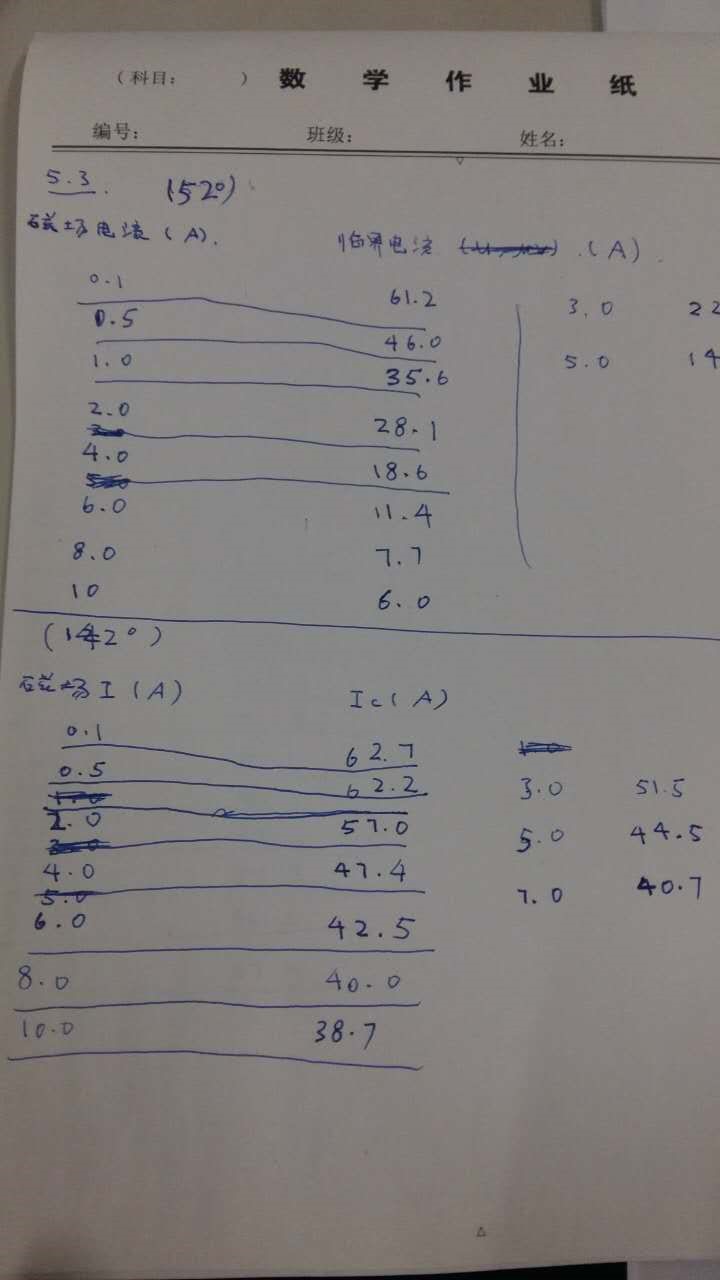 （科目： ） 数 学 作 业 纸
编号： 班级： 姓名：
5.3. (52°)
磁场电流(A). 临界电流 .(A).
0.1 61.2
0.5 46.0
1.0 35.6
2.0 28.1
4.0 18.6
6.0 11.4
8.0 7.7
10 6.0
3.0 22
5.0 14
(142°)
磁场I(A) Ic(A)
0.1 62.7
0.5 62.2
2.0 57.0
4.0 47.4
5.0
6.0 42.5
8.0 40.0
10.0 38.7
3.0 51.5
5.0 44.5
7.0 40.7